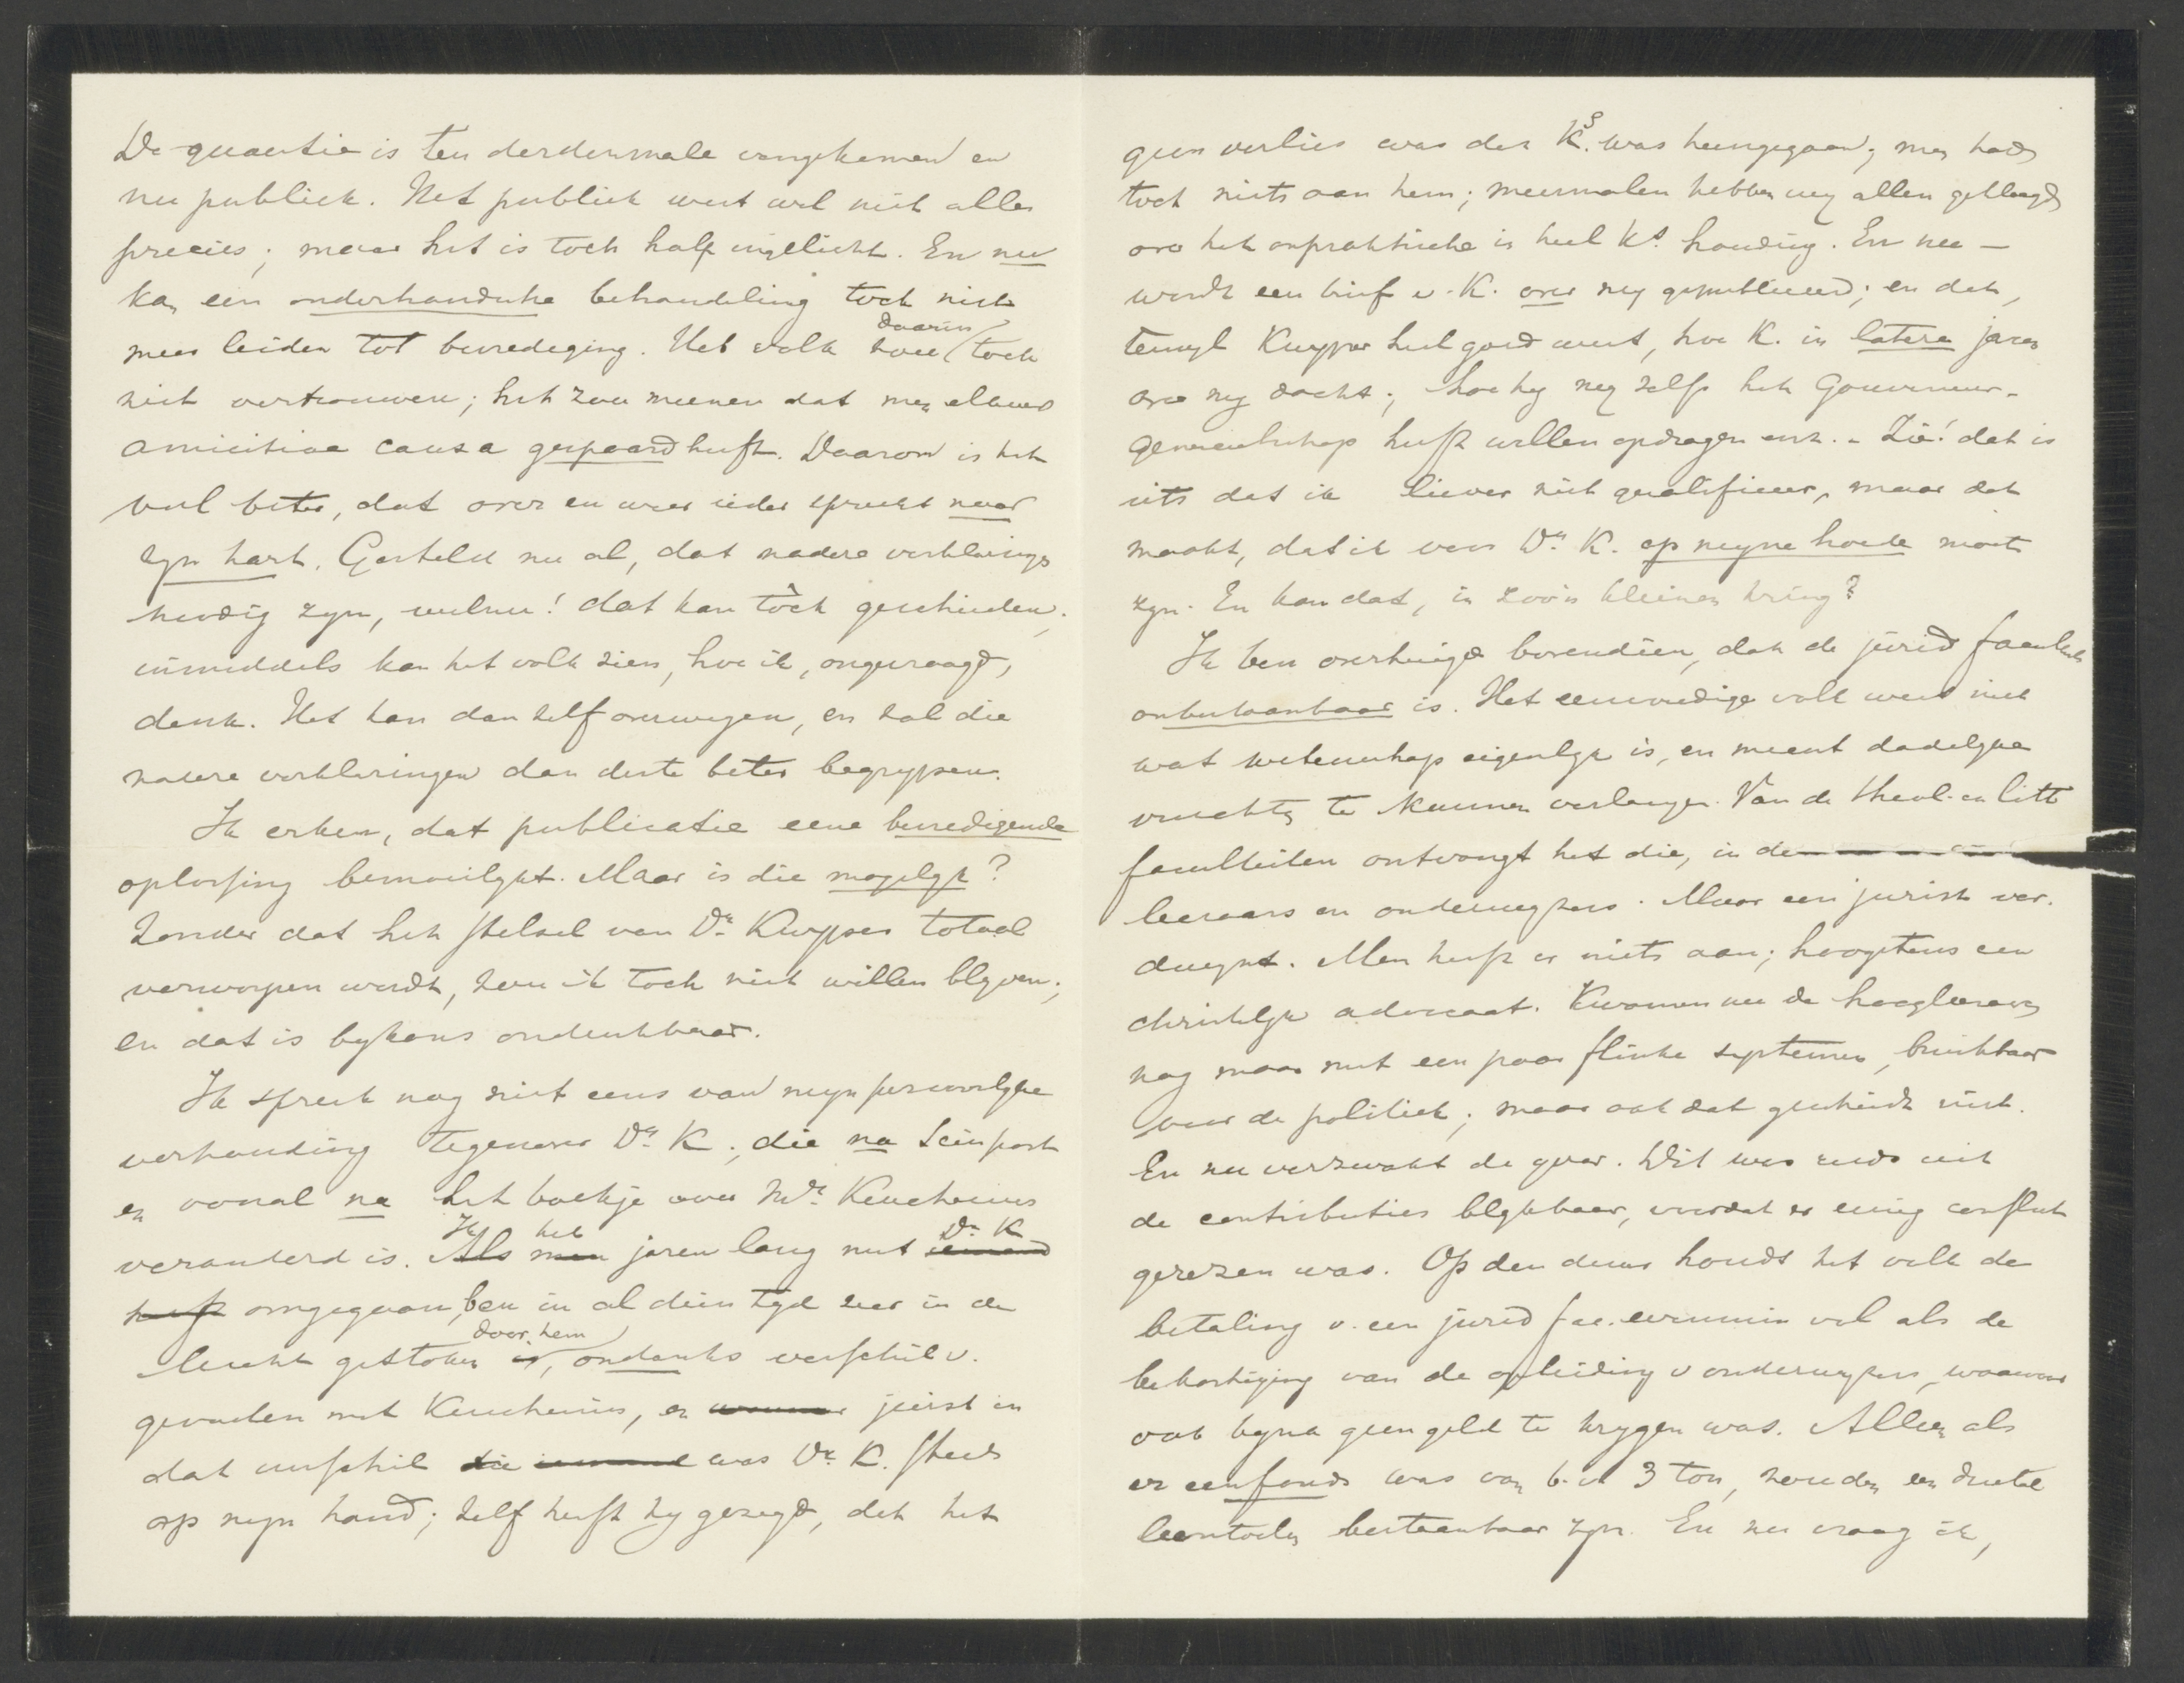 De quaestie is ten derdenmale voorgekomen en
nu publiek. Het publiek weet wel niet alles
precies; maar het is toch half ingelicht. En nu
kan een onderhandsche behandeling toch niet
meer leiden tot bevrediging. Het volk zou daarin toch
niet vertrouwen; het zou meenen dat men elkaar
amicitiae causa gespaard heeft. Daarom is het
veel beter, dat over en weer ieder spreekt naar
zyn hart. Gesteld nu al, dat nadere verklaringen
noodig zyn, welnu! dat kan tòch geschieden;
inmiddels kan het volk zien, hoe ik, ongevraagd,
denk. Het kan dan zelf overwegen, en zal die
nadere verklaringen dan deste beter begrypen.
Ik erken, dat publicatie eene bevredigende
oplossing bemoeilykt. Maar is die mogelyk?
Zonder dat het stelsel van Dr. Kuyper totaal
verworpen wordt, zou ik toch niet willen blyven;
en dat is bykans ondenkbaar.
Ik spreek nog niet eens van myn persoonlyke
verhouding tegenover Dr. K., die na Seinpost
en vooral na het boekje over Mr. Keuchenius
veranderd is. Ik heb jaren lang met Dr. K
omgegaan, ben in al dien tyd zeer in de
lucht gestoken door hem, ondanks verschil v.
gevoelen met Keuchenius, en juist in
dat verschil was Dr. K. steeds
op myn hand; zelf heeft hy gezegd, dat het
geen verlies was dat Ks. was heengegaan; men had
toch niets aan hem; meermalen hebben wy allen geklaagd
over het onpraktische in heel Ks. houding. En nu —
wordt een brief v. K. over my gepubliceerd; en dat,
terwyl Kuyper heel goed weet, hoe K. in latere jaren
over my dacht; hoe hy my zelfs het Gouverneur-
generaalschap heeft willen opdragen enz. - Zie! dat is
iets dat ik liever niet qualificeer, maar dat
maakt, dat ik voor Dr. K. op myne hoede moet
zyn. En kan dat, in zoo'n kleinen kring?
Ik ben overtuigd bovendien, dat de jurid faculteit
onbestaanbaar is. Het eenvoudige volk weet niet
wat wetenschap eigenlyk is, en meent dadelyke
vruchten te kunnen verlangen. Van de theol. en litt
faculteiten ontvangt het die, in de
leeraars en onderwyzers. Maar een jurist ver-
dwynt. Men heeft er niets aan; hoogstens een
christelyk advocaat. Kwamen nu de hoogleeraren
nog maar met een paar flinke systemen, bruikbaar
voor de politiek; maar ook dat geschiedt niet.
En nu verzwakt de yver. Dit was reeds uit
de contributies blykbaar, voordat er eenig conflict
gerezen was. Op den duur houdt het volk de
betaling v. een jurid fac. evenmin vol als de
bekostiging van de opleiding v onderwyzers, waarvoor
ook byna geen geld te krygen was. Alleen als
er een fonds was van b.v. 3 ton, zouden een drietal
leerstoelen bestaanbaar zyn. En nu vraag ik,